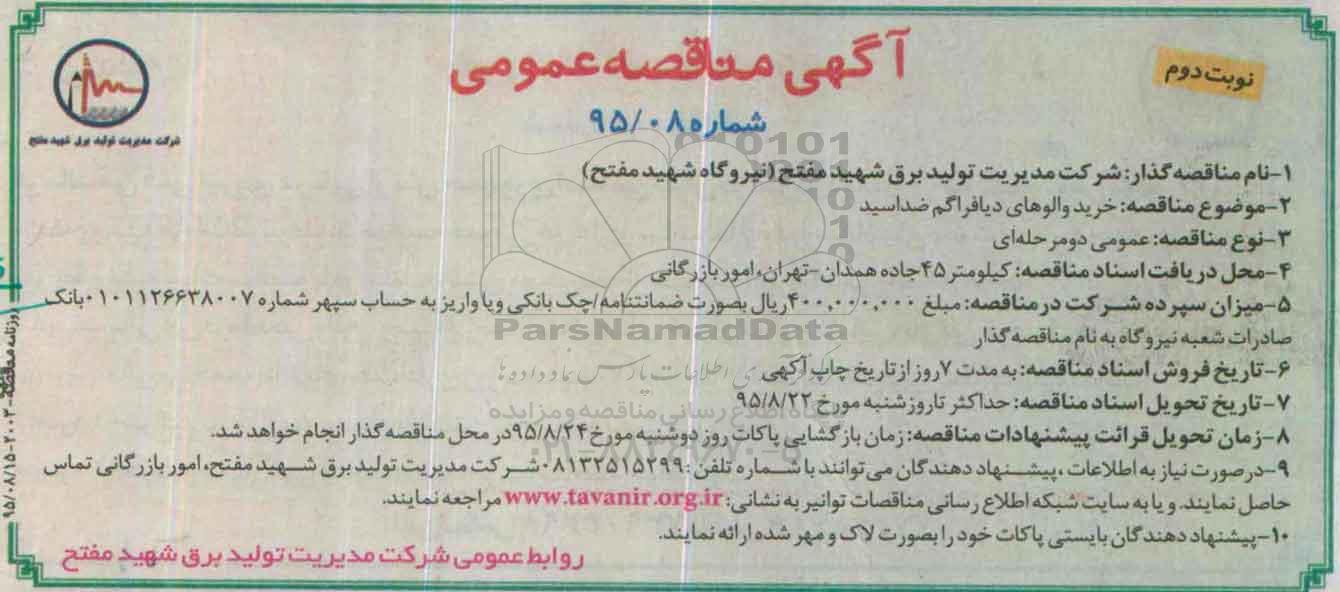 نوبت دوم
آگهی مناقصه عمومی
شماره ۹۵/۰۸
شرکت مدیریت تولید برق شهید مفتح
۱-نام مناقصه گذار: شرکت مدیریت تولید برق شهید مفتح (نیروگاه شهید مفتح)
۲-موضوع مناقصه: خرید والوهای دیافراگم ضداسید
۳-نوع مناقصه: عمومی دومرحله‌ای
۴-محل دریافت اسناد مناقصه: کیلومتر ۴۵ جاده همدان-تهران، امور بازرگانی
۵-میزان سپرده شرکت در مناقصه: مبلغ ۴۰۰,۰۰۰,۰۰۰ ریال بصورت ضمانتنامه/چک بانکی ویا واریز به حساب سپهر شماره ۰۱۰۱۱۲۶۶۳۸۰۰۷ بانک
صادرات شعبه نیروگاه به نام مناقصه گذار
۶-تاریخ فروش اسناد مناقصه: به مدت ۷ روز از تاریخ چاپ آگهی
۷-تاریخ تحویل اسناد مناقصه: حداکثر تا روز شنبه مورخ ۹۵/۸/۲۲
۸-زمان تحویل قرائت پیشنهادات مناقصه: زمان بازگشایی پاکات روز دوشنبه مورخ ۹۵/۸/۲۴ در محل مناقصه گذار انجام خواهد شد.
۹-درصورت نیاز به اطلاعات، پیشنهاد دهندگان می توانند با شماره تلفن: ۰۸۱۳۲۵۱۵۲۹۹ شرکت مدیریت تولید برق شهید مفتح، امور بازرگانی تماس
حاصل نمایند. و یا به سایت شبکه اطلاع رسانی مناقصات توانیر به نشانی: www.tavanir.org.ir مراجعه نمایند.
۱۰-پیشنهاد دهندگان بایستی پاکات خود را بصورت لاک و مهر شده ارائه نمایند.
روابط عمومی شرکت مدیریت تولید برق شهید مفتح
روزنامه مناقصه-۲۰۰۳-۹۵/۰۸/۱۵
ParsNamadData
مرکز فرآوری اطلاعات پارس نماد داده ها
پایگاه اطلاع رسانی مناقصه و مزایده